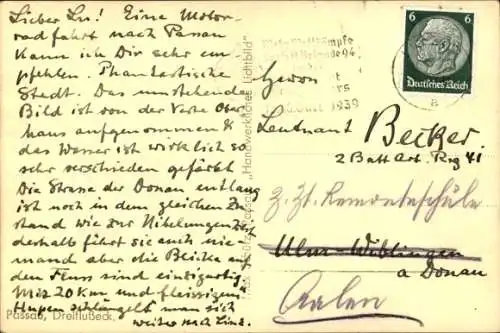 Lieber Lu! Eine Motor-
radfahrt nach Passau
kann ich Dir sehr em-
pfehlen. Phantastische
Stadt. Das umstehende
Bild ist von der Veste Ober
haus aufgenommen &
das Wasser ist wirklich so
sehr verschieden gefärbt
Die Strasse der Donau entlang
ist noch in dem gleichen Zu
stand wie zur Nibelungenzeit
deshalb führt sie auch nie-
mand aber die Blicke auf
den Fluss sind einzigartig
Mit 20 Km und fleissigem
Hupen schlängelt man sich
weiter nach Linz.
Passau, Dreiflußeck.
"Handwerkliches Lichtbild"
1939
6 6
Deutsches Reich
a
Herrn
Leutnant Becker
2 Batt Art. Reg 41
z. Zt. Remonteschule
Ulm-Wiblingen
a Donau
Aalen